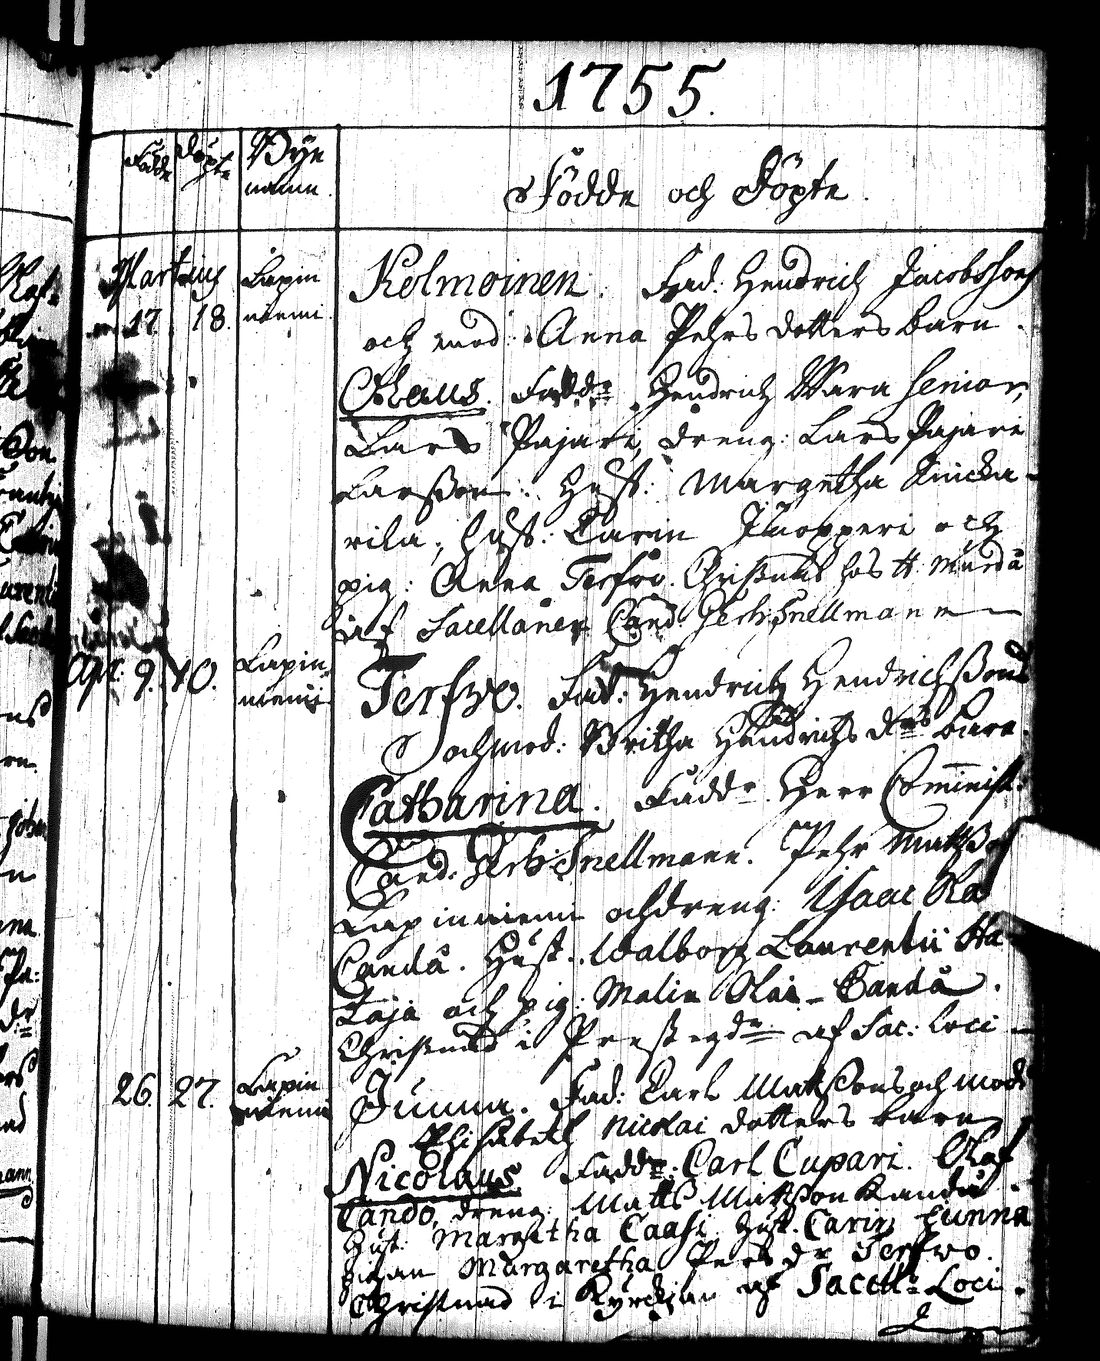 1755.
Födde
Döpte
Byens
namn.
Födde och Döpte.
Martius
17. 18.
Lapin
niemi.
Kolmoinen. Fad: Hendrich Jacobssons
och mod: Anna Pehrs dotters barn.
Olaus. Fadd: Hendrich Wara Senior,
Lars Pajari, dreng: Lars Pajari
Larsson. Hust: Margetha
rila, Hust: Carin och
pig: Anna Terfwo. Christnat hos H: Murdå
af Sacellanen Cand. Snellmann
Apr: 9. 10.
Lapin
niemi
Terfwo. Fad: Hendrich Hendrichssons
och mod: Britha Hendrichs drs barn.
Catharina. Faddr. Herr Comminist:
Cand: Snellmann. Pehr Matss
Lapinniemi och dreng: Isaac Ra
Candå. Hust: Walborg Laurentii Ha-
taja och pig: Malin Olai Candå.
Christnad i Prestegdn af Sac: Loci
26. 27.
Lapin
niemi
Junna. Fad: Carl Matssons och mod:
Elisabeth Nicolai dotters barn
Nicolaus. Faddr: Carl Cupari. Olof
Cando, dreng: Matts Matsson Kandå.
Hust: Margetha Caasi. Hust. Carin Junna
Pigan Margaretha Pers dr Terfwo.
Christnad i Kyrckian af Sacell: Loci.